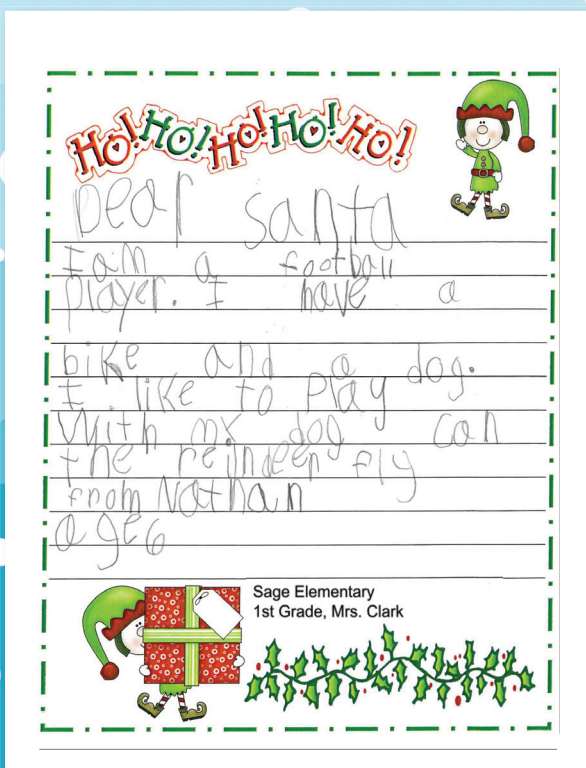 Ho! Ho! Ho! Ho! Ho!
Dear Santa
I am a football
player. I have a
bike and a dog.
I like to Play
With my dog can
the reindeer fly
from Nathan
age 6
Sage Elementary
1st Grade, Mrs. Clark